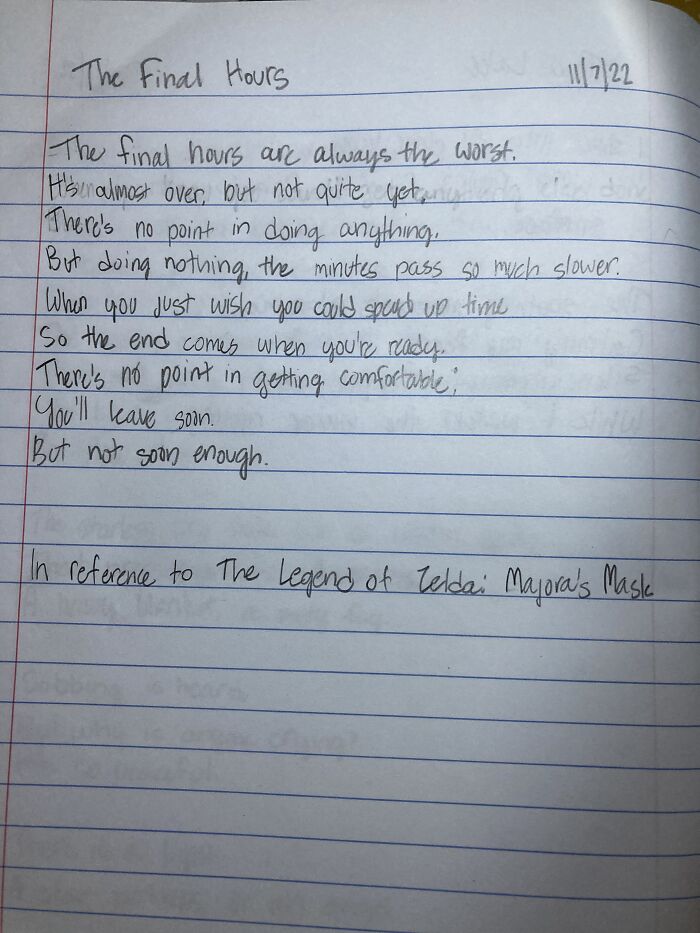 The Final Hours 11/7/22
The final hours are always the worst.
It's almost over, but not quite yet,
There's no point in doing anything.
But doing nothing, the minutes pass so much slower.
When you just wish you could speed up time
So the end comes when you're ready.
There's no point in getting comfortable;
You'll leave soon.
But not soon enough.
In reference to The Legend of Zelda: Majora's Mask
Sobbing is heard